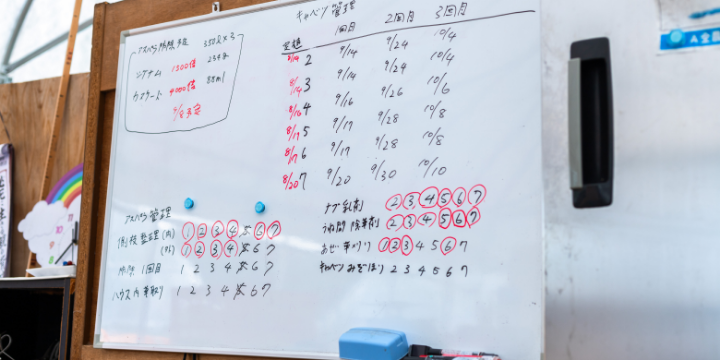 アスパラ防除予定 350ℓ×3
1500倍 234g
4000倍 88ml
9/8予定
キャベツ管理
1回目 2回目 3回目
定植
8/14 2 9/14 9/24 10/4
8/14 3 9/14 9/24 10/4
8/16 4 9/16 9/26 10/6
8/17 5 9/17 9/28 10/8
8/17 6 9/17 9/28 10/8
8/20 7 9/20 9/30 10/10
アスパラ管理
側枝整理(内) 1 2 3 4 5 6 7
(外) 1 2 3 4 5 6 7
1回目 1 2 3 4 5 6 7
ハウス内草取り 1 2 3 4 5 6 7
ナブ乳剤 2 3 4 5 6 7
うね間除草剤 2 3 4 5 6 7
あぜ草刈り 1 2 3 4 5 6 7
キャベツみぞほり 2 3 4 5 6 7
A全農